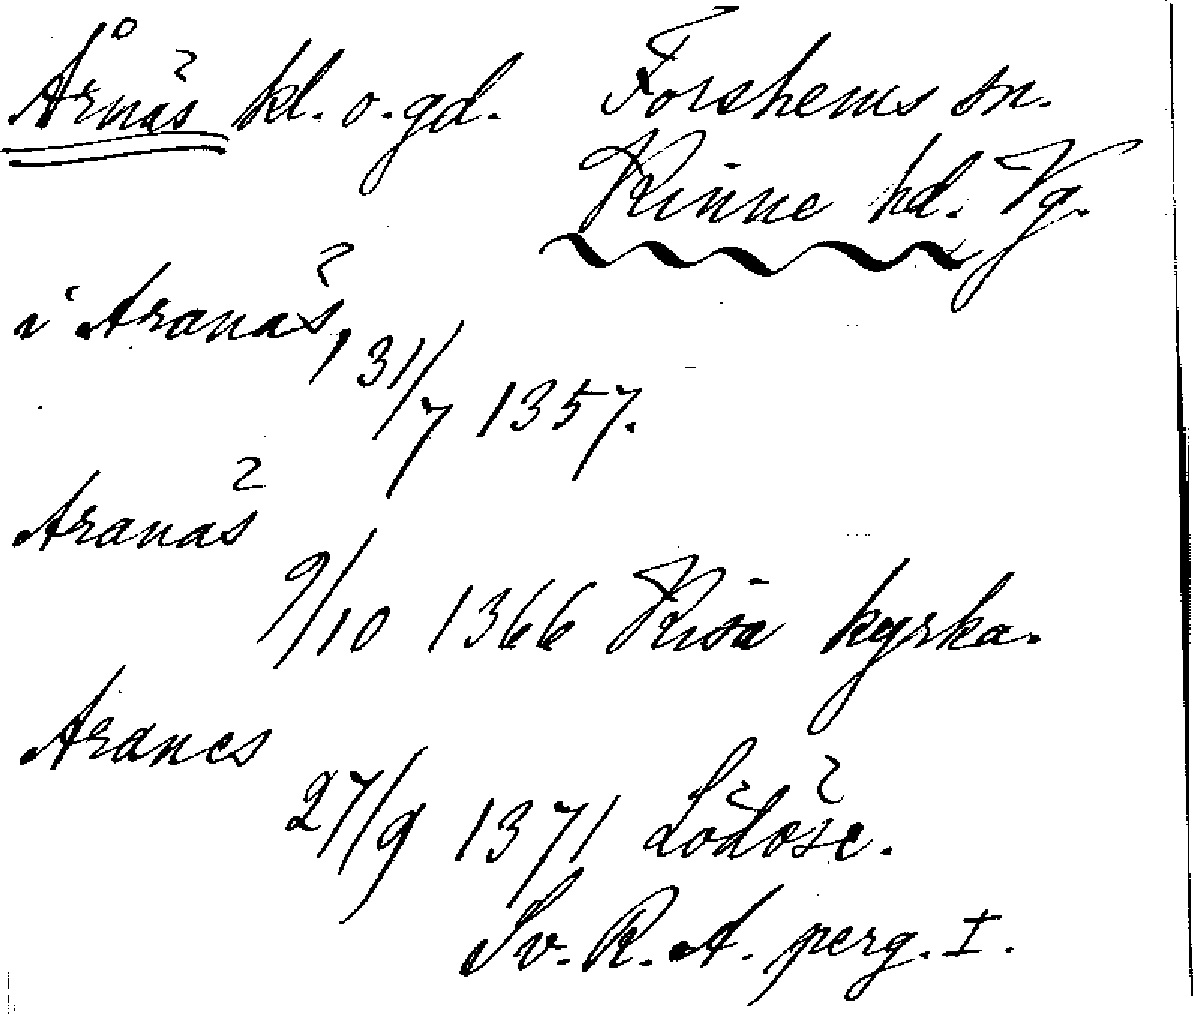 Årnäs kl. o. gd. Forshems sn.
Kinne hd. Vg.
i Aranäs, 31/7 1357.
Aranäs
9/10 1366 Kisa kyrka.
Aranes
27/9 1371 Lödöse.
Sv. R. A. perg. I.